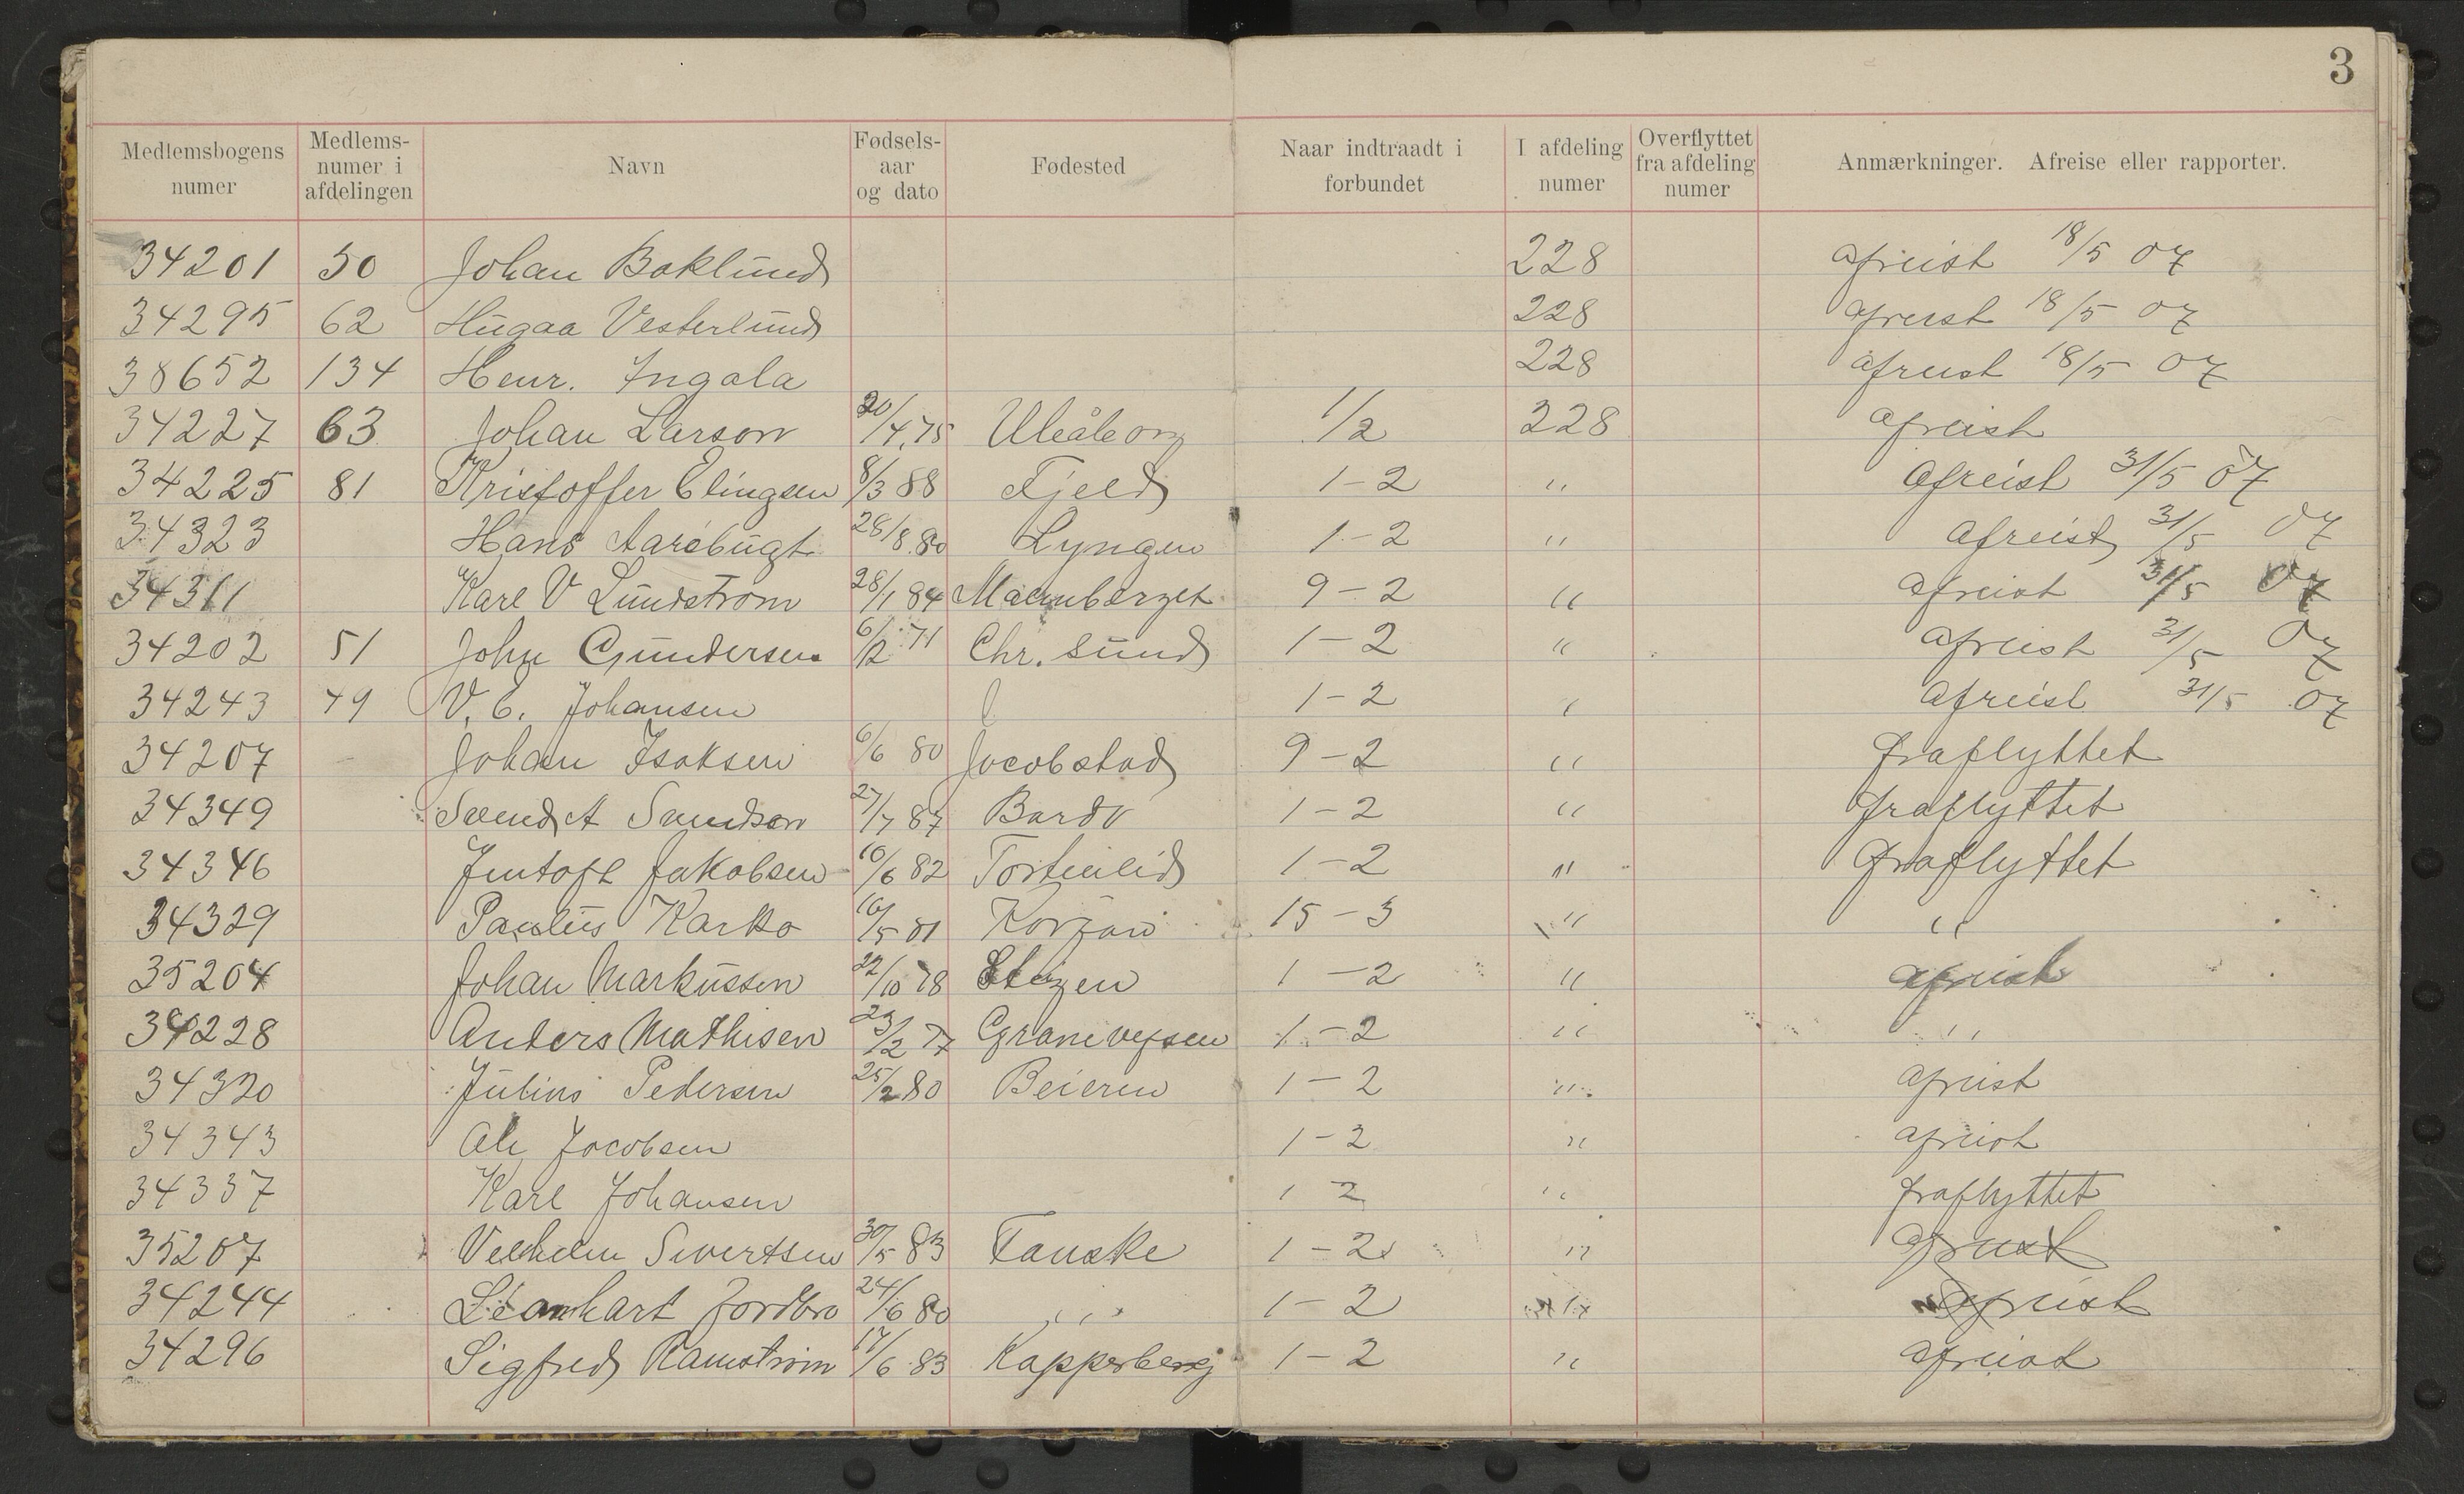 3
Medlemsbogens numer | Medlems-numer i afdelingen | Navn | Fødsels-aar og dato | Fødested | Naar indtraadt i forbundet | I afdeling numer | Overflyttet fra afdeling numer | Anmærkninger. Afreise eller rapporter.
34201 50 Johan Baklund 228 afreist 18/5 07
34295 62 Hugaa Vesterlund 228 afreist 18/5 07
38652 134 Henr. Ingala 228 afreist 18/5 07
34227 63 Johan Larson 20/4.75 Uleåborg 1/2 228 afreist
34225 81 Kristoffer Elingsen 8/3 88 Fjeld 1-2 " Afreist 31/5 07
34323 Hans Aarebugt 28/8.80 Lyngen 1-2 " Afreist 31/5 07
34311 Karl V Lundstrom 28/1 84 9-2 " afreist 31/5 07
34202 51 John Gundersen 6/12 71 Chr. sund 1-2 " afreist 31/5 07
34243 79 V. E. Johansen 1-2 " afreist 31/5 07
34207 Johan Isaksen 6/6 80 Jacobstad 9-2 " fraflyttet
34349 Svend A 27/7 87 Bardo 1-2 " fraflyttet
34346 Jentoft Jakobsen 10/6 82 1-2 " fraflyttet
34329 Paulus Karko 10/5 81 15-3 " "
35204 Johan Markussen 22/10 78 Steigen 1-2 " afreist
34228 Anders Mathisen 23/2 77 1-2 " "
34320 Julius Pedersen 25/2 80 Beieren 1-2 " afreist
34343 Ole Jacobsen 1-2 " afreist
34337 Karl Johansen 1 2 " fraflyttet
35207 Velhelm Sivertsen 30/5 83 Fauske 1-2 " afreist
34244 Leonhart Jordbro 24/6 80 " 1-2 " afreist
34296 Sigfred Ramstrøm 17/6 83 Kapperberg 1-2 " afreist